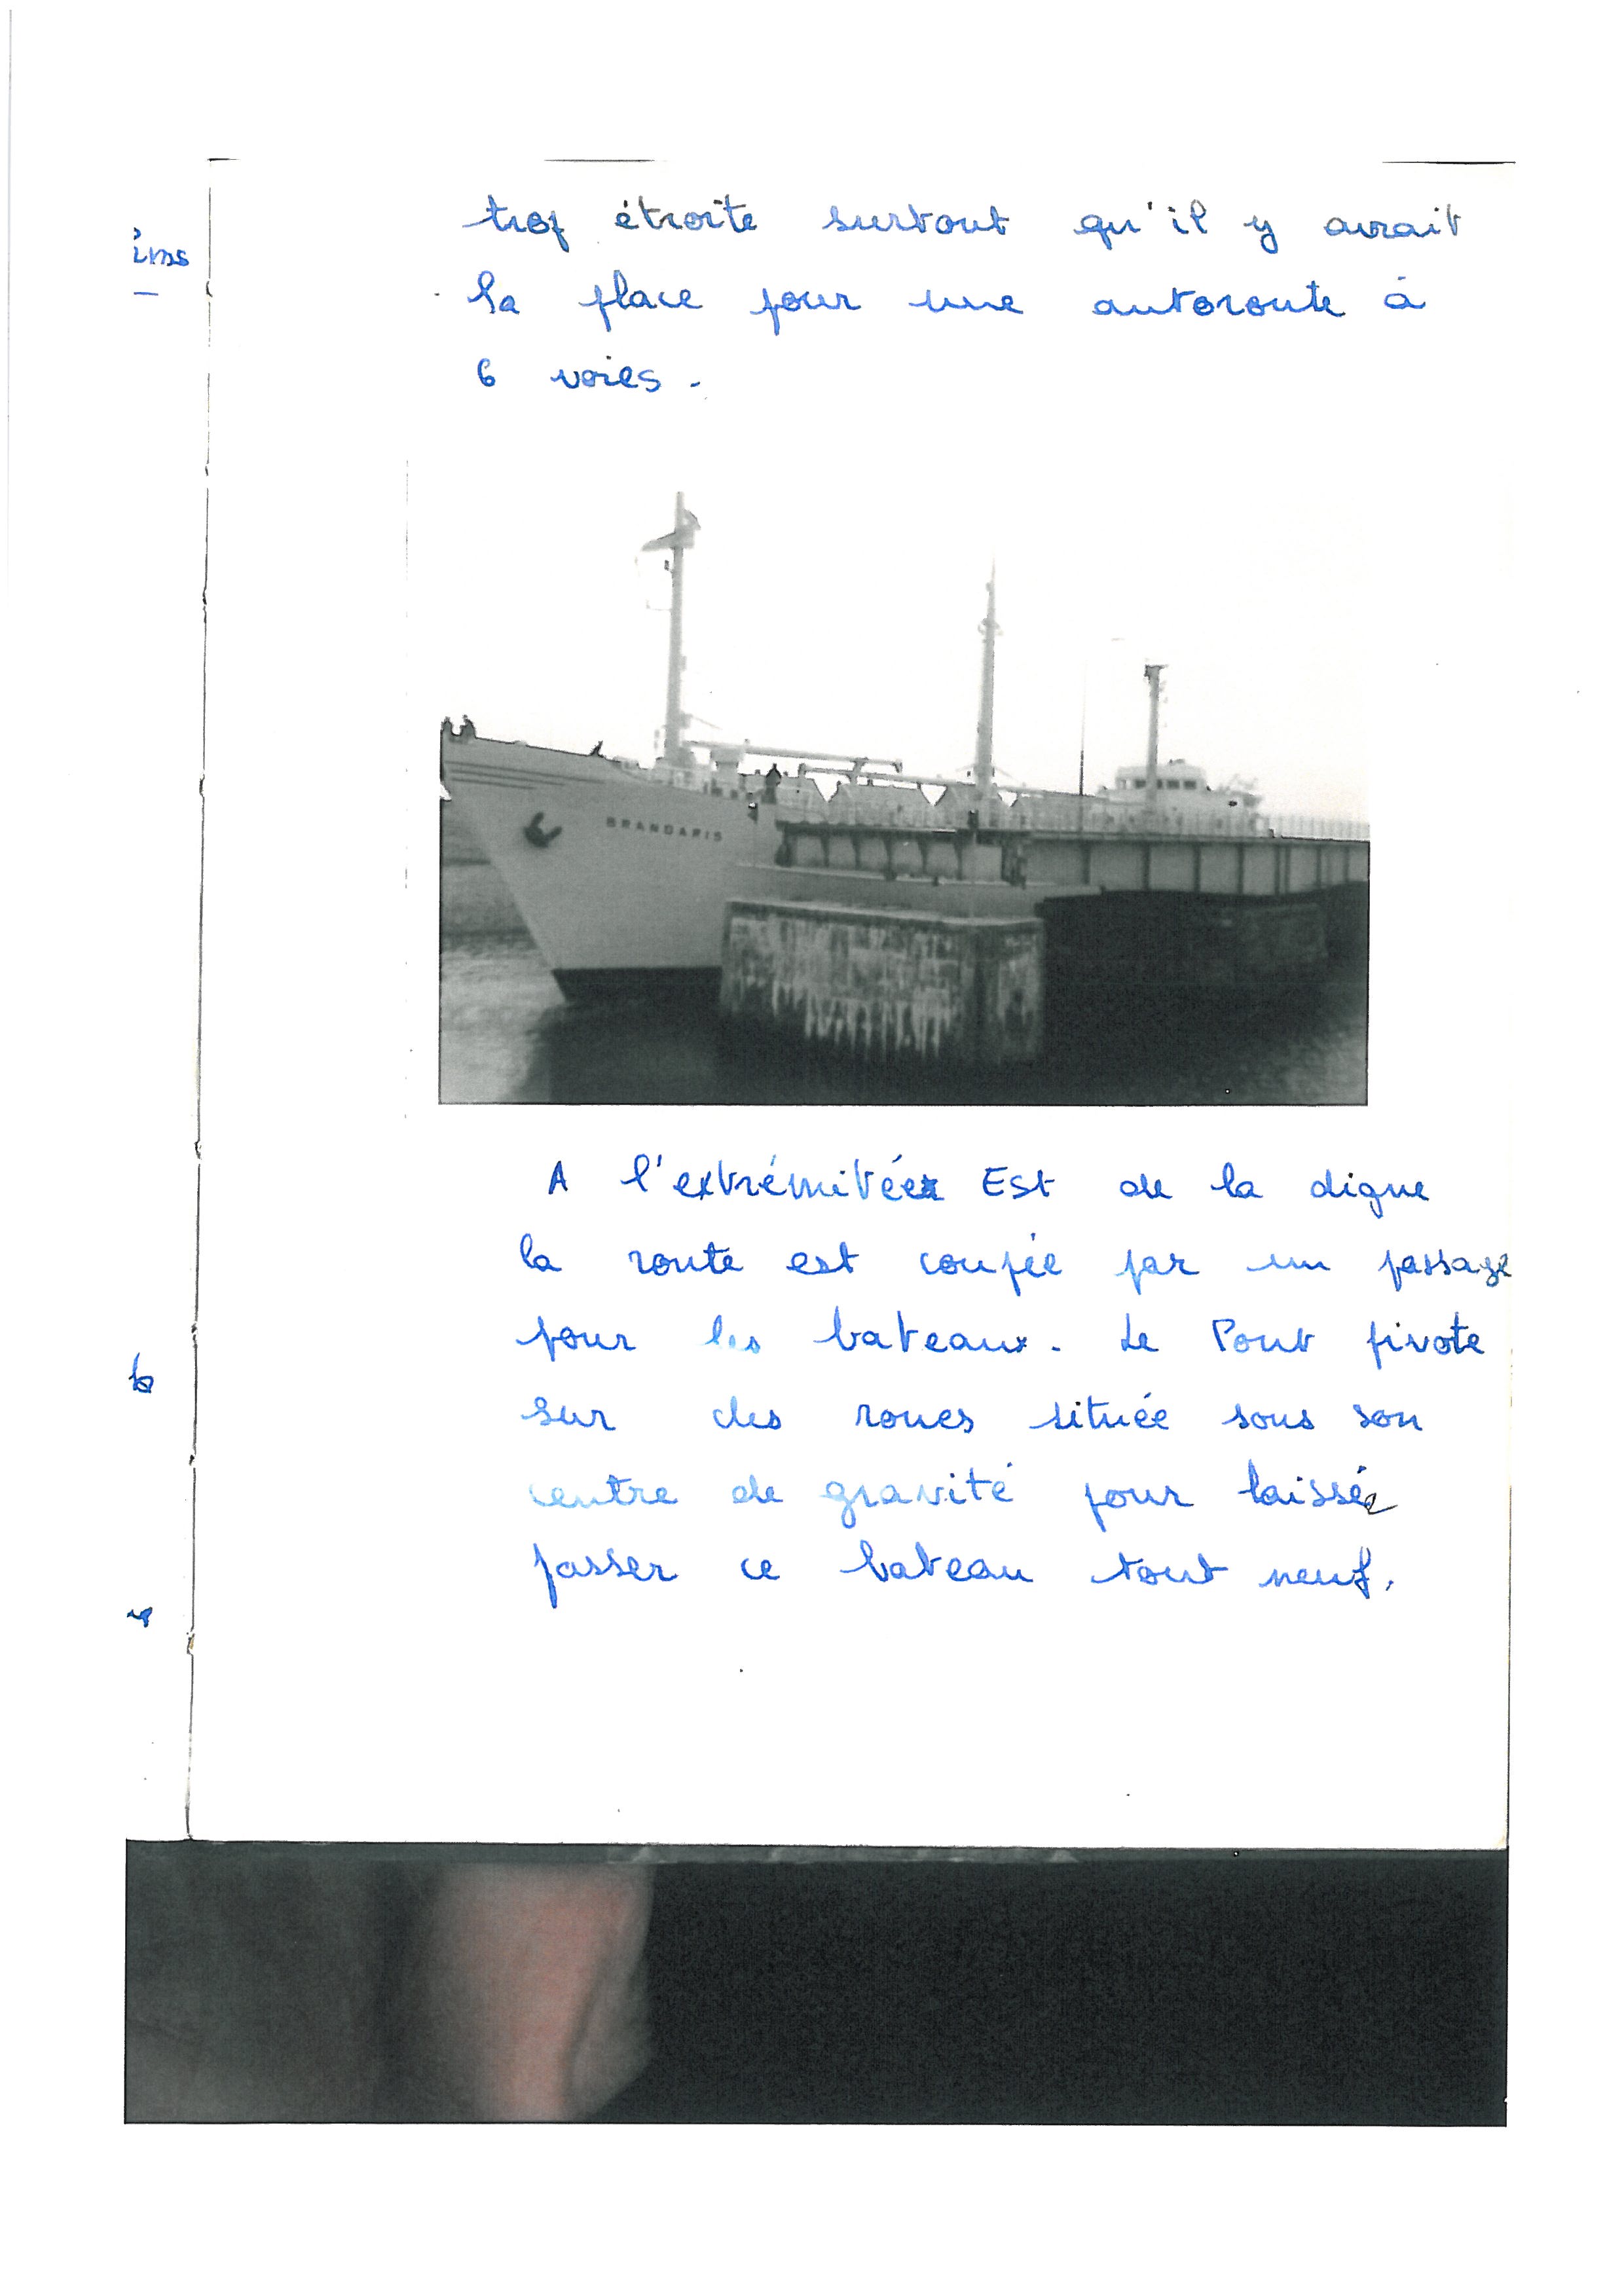 trop étroite surtout qu'il y aurait
la place pour une autoroute à
6 voies.
BRANDARIS
A l'extrémitée Est de la digue
la route est coupée par un passage
pour les bateaux. Le Pont pivote
sur des roues située sous son
centre de gravité pour laissée
passer ce bateau tout neuf.